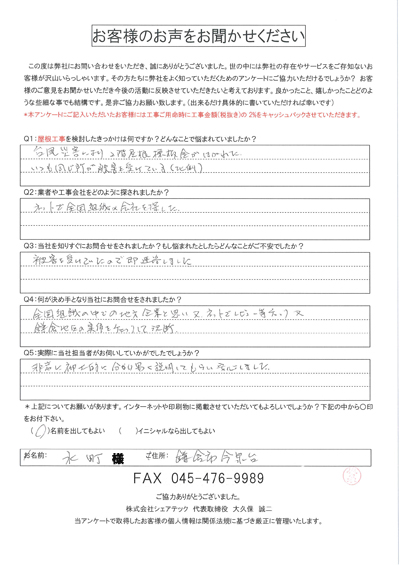 お客様のお声をお聞かせください
この度は弊社にお問い合わせをいただき、誠にありがとうございました。世の中には弊社の存在やサービスをご存知ないお
客様が沢山いらっしゃいます。その方たちに弊社をよく知っていただくためのアンケートにご協力いただけるでしょうか? お客
様のご意見をお聞かせいただき今後の活動に反映させていただきたいと考えております。良かったこと、嬉しかったことどのよ
うな些細な事でも結構です。是非ご協力お願い致します。(出来るだけ具体的に書いていただければ幸いです)
*本アンケートにご記入いただいたお客様には工事ご用命時に工事金額(税抜き)の 2%をキャッシュバックさせていただきます。
Q1:屋根工事を検討したきっかけは何ですか?どんなことで悩まれていましたか?
台風災害により2階屋根棟板金がはがれた
いつも同じ所が被害を受けている
Q2:業者や工事会社をどのように探されましたか?
ネットで全国組織の会社を探した
Q3:当社を知りすぐにお問合せをされましたか?もし悩まれたとしたらどんなことがご不安でしたか?
被害を受けていたので即連絡しました
Q4:何が決め手となり当社にお問合せをされましたか?
全国組織の中での地元企業と思い 又 ネットで 又
鎌倉地区の実績をチェックして決断
Q5:実際に当社担当者がお伺いしていかがでしたでしょうか?
非常に紳士的に分かり易く説明してもらい安心しました
*上記についてお願いがあります。インターネットや印刷物に掲載させていただいてもよろしいでしょうか?下記の中から〇印
をお付下さい。
(〇)名前を出してもよい ( )イニシャルなら出してもよい
お名前: 永町 様 ご住所: 鎌倉市今泉台
FAX 045-476-9989
ご協力ありがとうございました。
株式会社シェアテック 代表取締役 大久保 誠二
当アンケートで取得したお客様の個人情報は関係法規に基づき厳正に管理いたします。